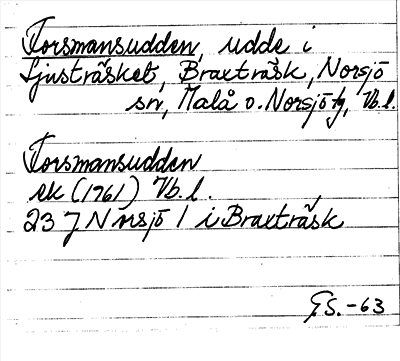 Forsmansudden, udde i
Ljusträsket, Braxträsk, Norsjö
sn, Malå o. Norsjö tg, Vb. l.
Forsmansudden
ek (1961) Vb. l.
23 J Norsjö 1 i Braxträsk
G.S. -63